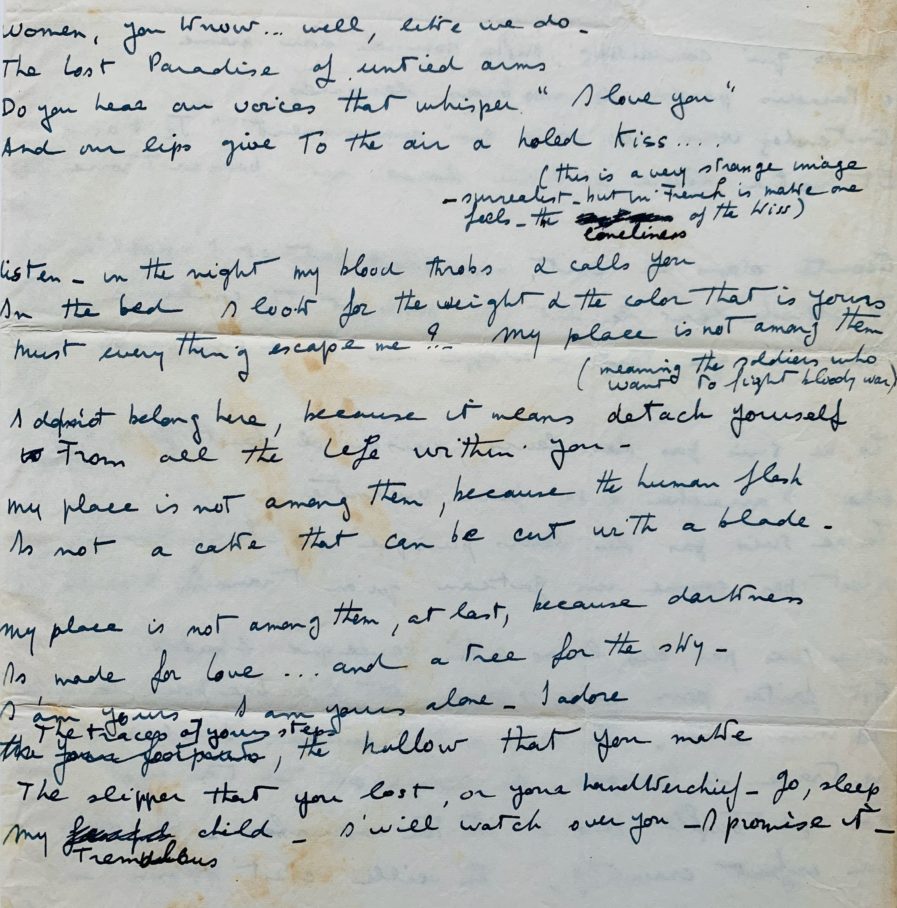 Women, you know... well, like we do -
The lost Paradise of untied arms
Do you hear our voices that whisper "I love you"
And our lips give to the air a holed kiss....
(this is a very strange image
- surrealist - but in French is make one
feels - the of the kiss)
loneliness
listen - in the night my blood throbs & calls you
In the bed I look for the weight & the color that is yours
Must every thing escape me?! - My place is not among them
(meaning the soldiers who
want to fight bloody war)
I don't belong here, because it means detach yourself
From all the life within you -
My place is not among them, because the human flesh
Is not a cake that can be cut with a blade -
My place is not among them, at last, because darkness
Is made for love ... and a tree for the sky -
I am yours I am yours alone - I adore
The traces of your steps
the your footprints, the hollow that you make
The slipper that you lost, or your handkerchief - Go, sleep
My child - I will watch over you - I promise it -
Tremulous